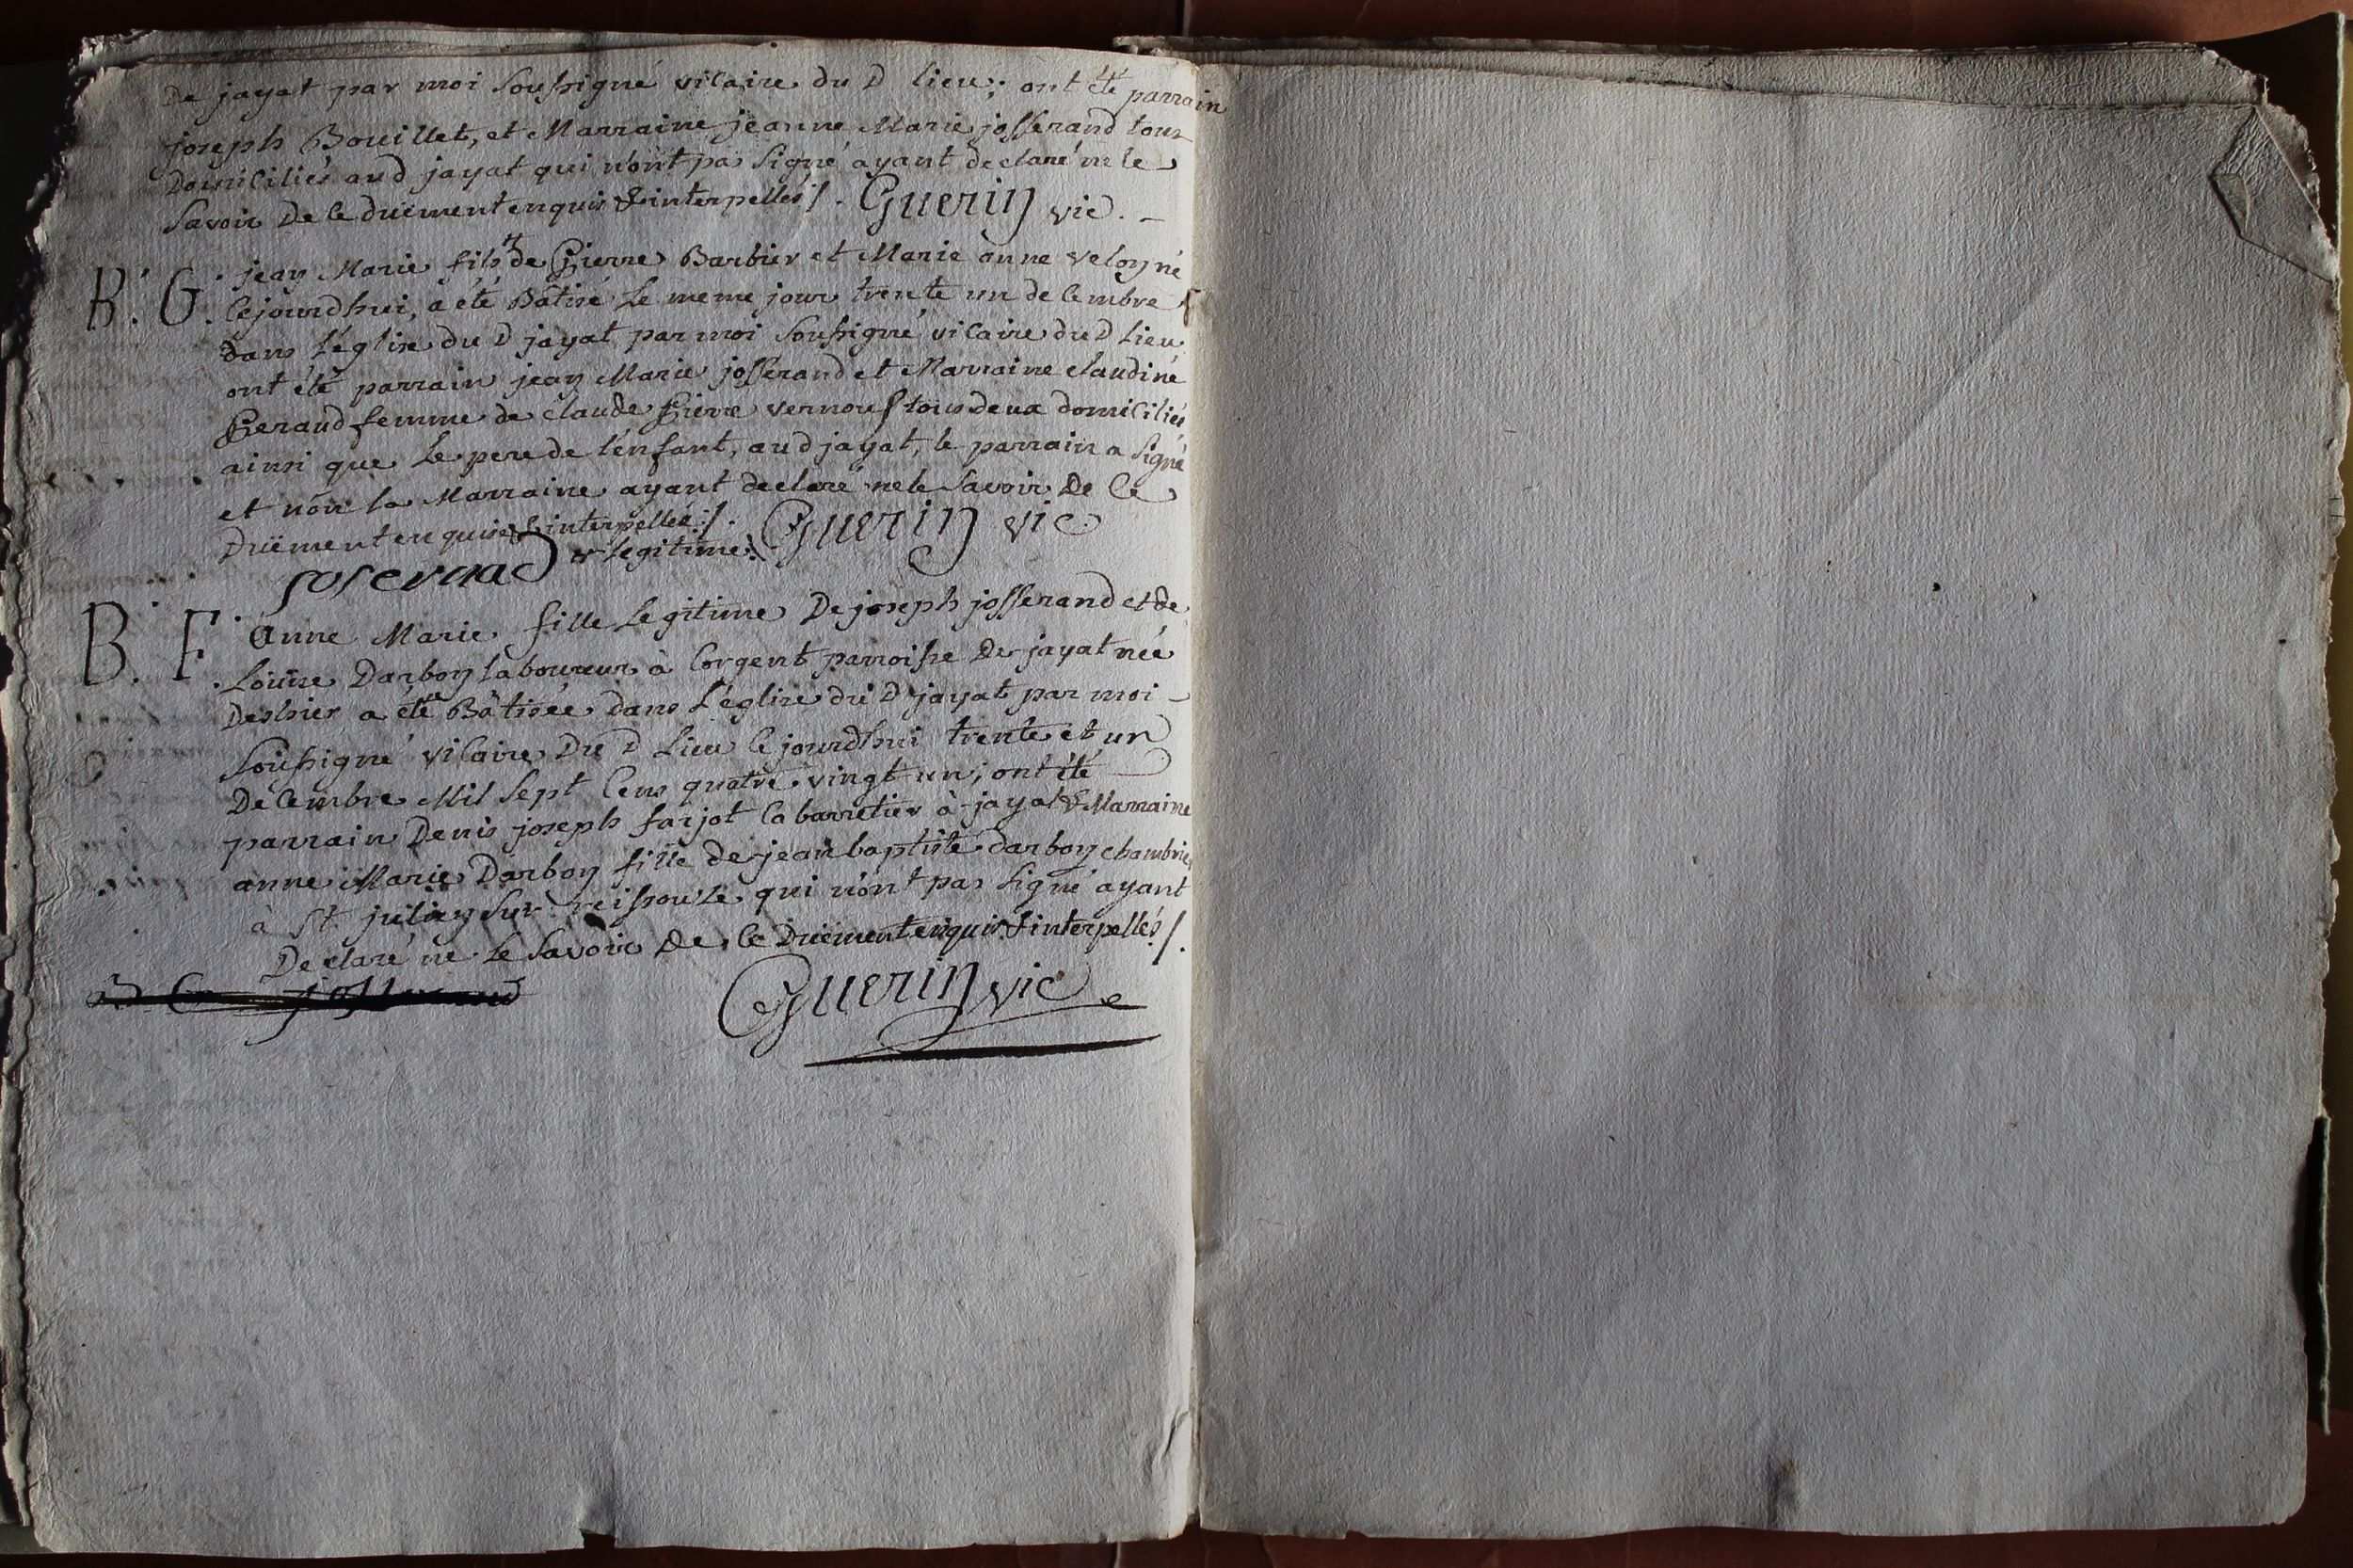 De jayat par moi Soussigné vicaire du D lieu; ont été parrain
joseph Bouillet, et Marraine jeanne Marie josserand tous
Domiciliés aud jayat qui n'ont pas Signé ayant declaré ne le
Savoir De ce duëment enquis & interpellés /. Guerin vic. –
B. G. jean Marie fils + de Pierre Barbier et Marie anne veloy né
cejourdhui, a été Bâtisé Le meme jour trente un decembre
dans L'église du D jayat par moi Soussigné vicaire du D Lieu
ont été parrain jean Marie josserand et Marraine claudine
Peraud femme de claude Pierre vernoux tous deux domiciliés
ainsi que Le pere de l'enfant, aud jayat, le parrain a Signé
et non la Marraine ayant declaré ne le Savoir De ce
Duëment enquise & interpellée /. Guerin vic.
+ Legitime
joserand
B. F. Anne Marie fille Legitime De joseph josserand et de
Loüise Darbon laboureur à Corgent parroisse De jayat née
Deshier a été Bâtisée dans L'église du D jayat par moi –
Soussigné vicaire Du D Lieu cejourdhui trente et un
Decembre Mil Sept Cens quatre vingt un; ont été
parrain Denis joseph farjot Cabarretier à jayat & Marraine
anne Marie Darbon fille de jean baptiste darbon chambrier
à St. julien Sur reissouse qui n'ont pas Signé ayant
Declaré ne Le Savoir De ce Duëment enquis & interpellés /.
josserand
Guerin vic